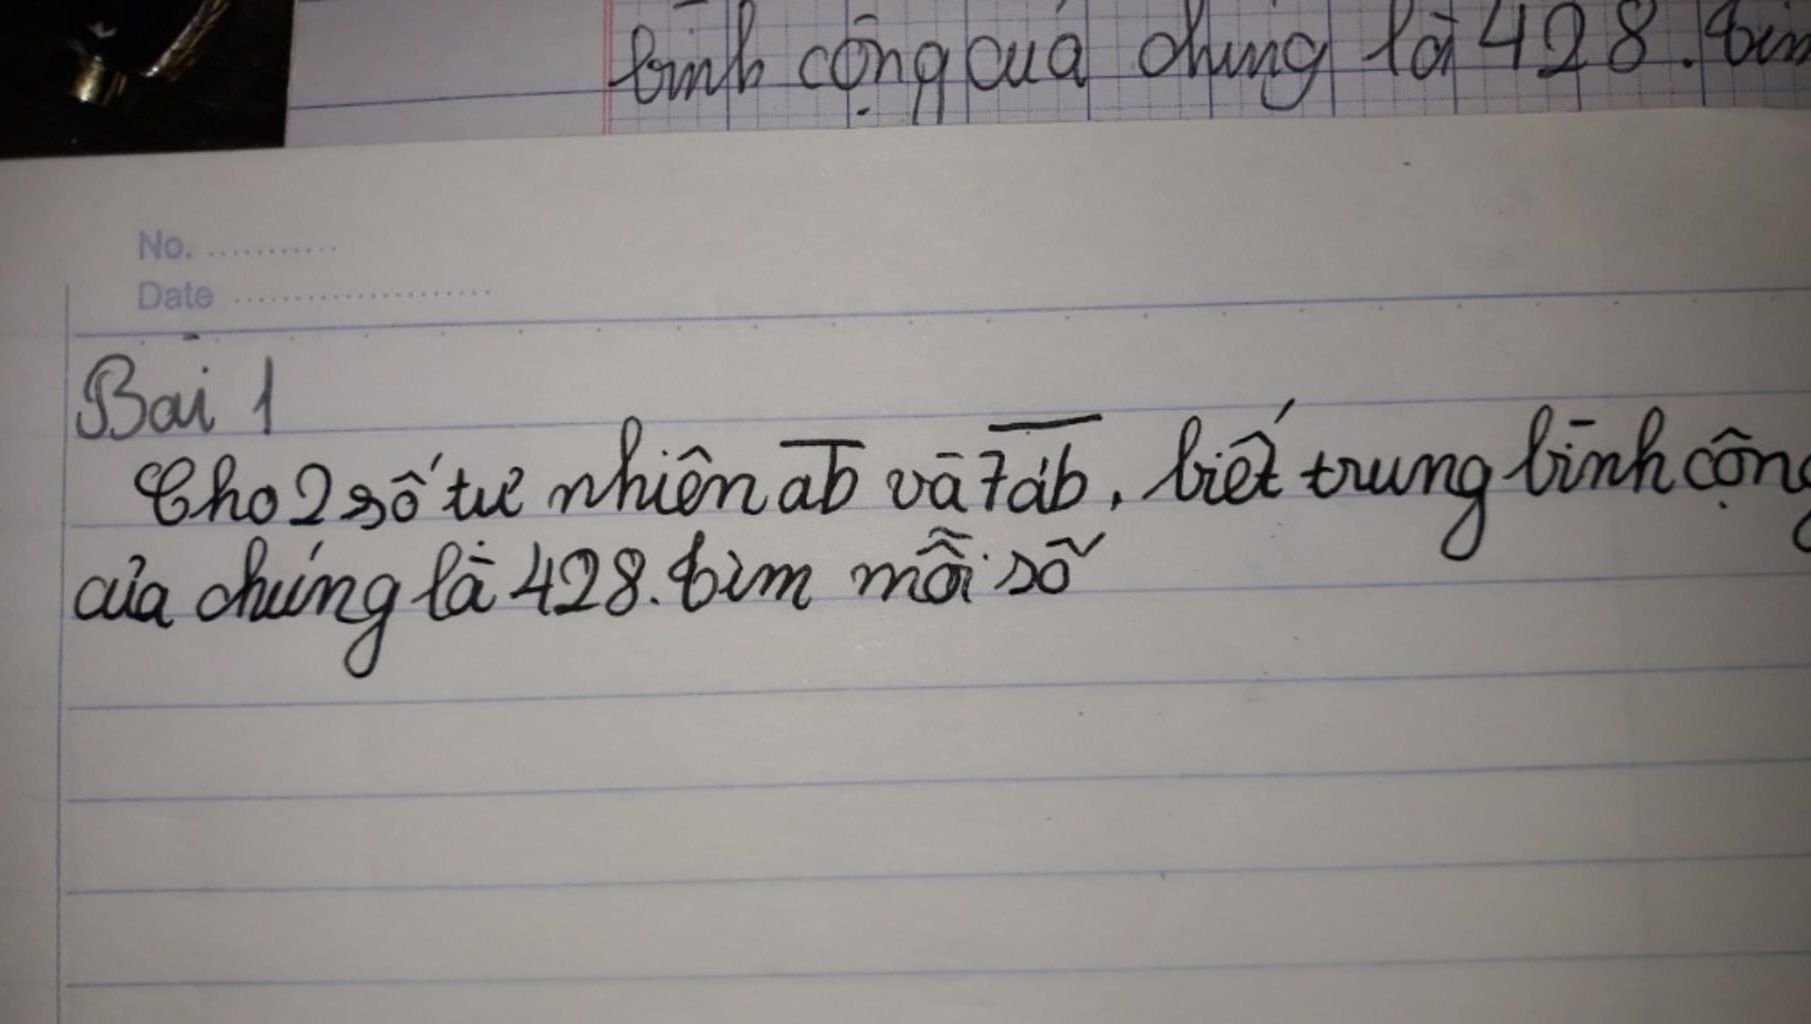 bình cộng của chúng là 428. tìm
No. ...........
Date ......................
Bài 1
Cho 2 số tự nhiên ab và 7ab, biết trung bình cộng
của chúng là 428. tìm mỗi số